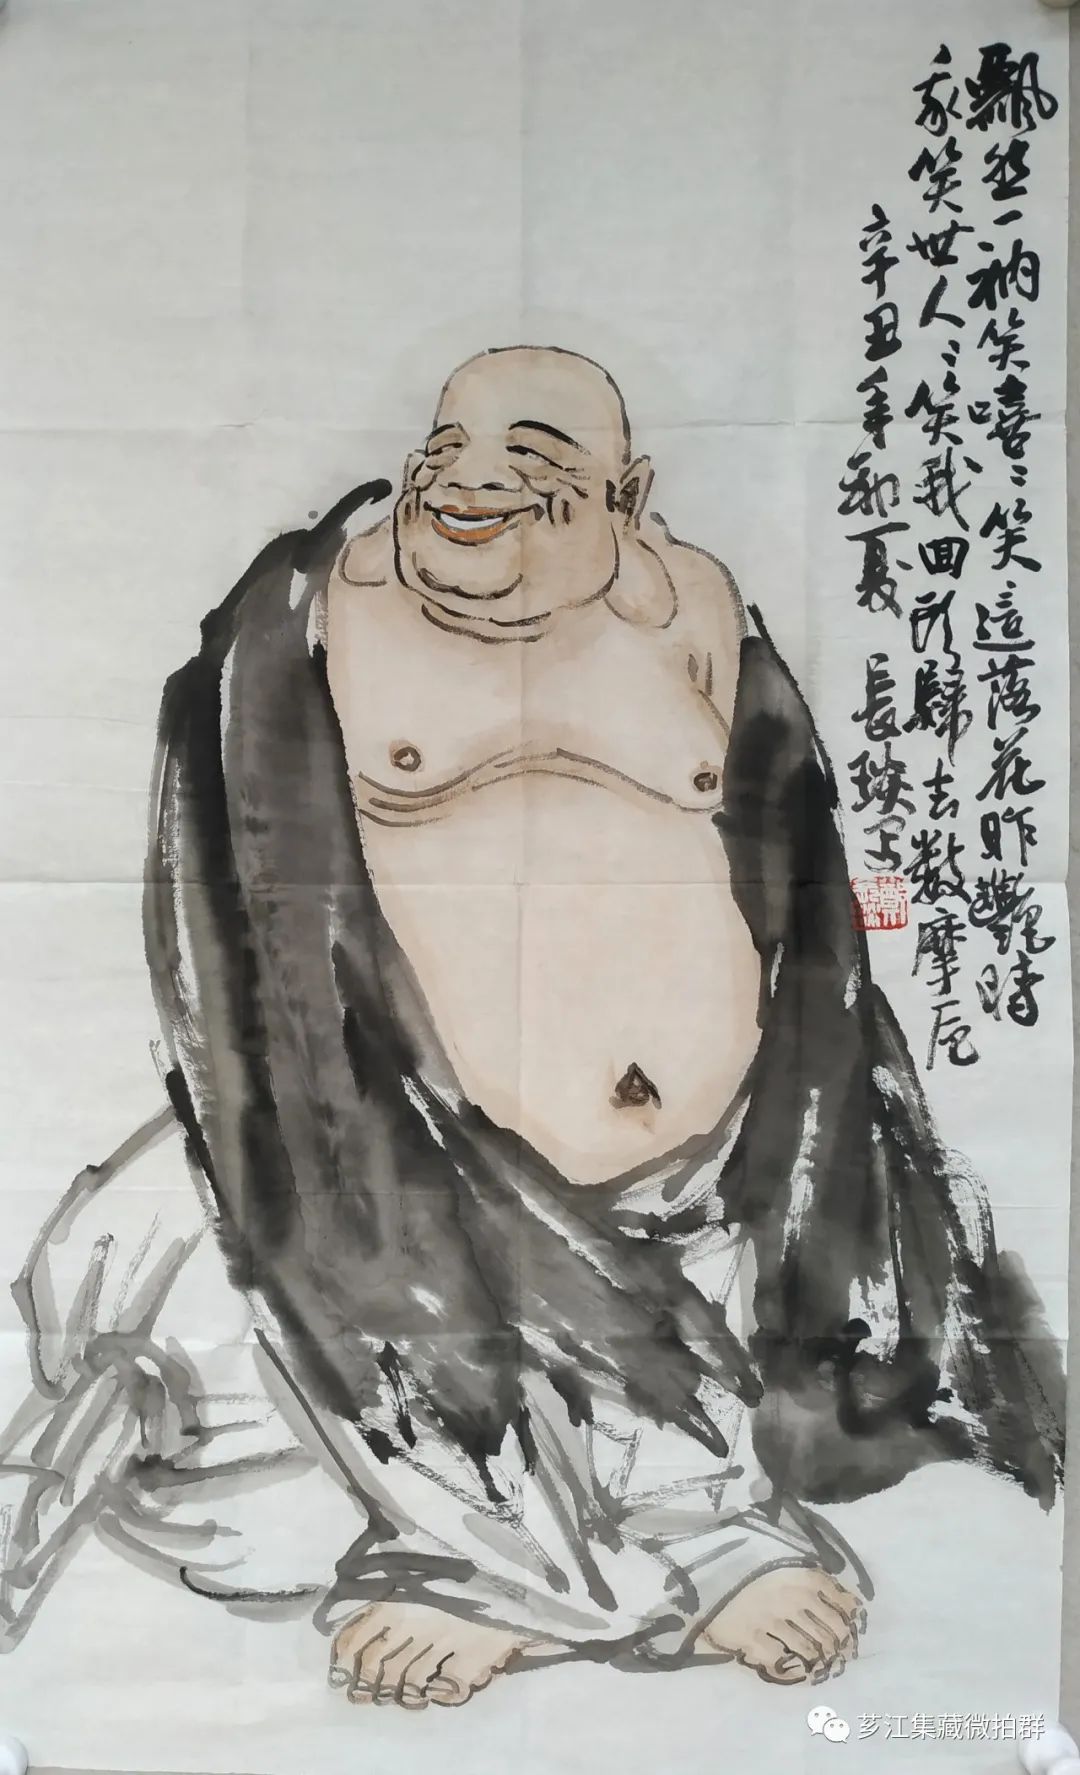 飄然一衲笑嘻〻笑這落花昨艷時
我笑世人〻笑我囬頭歸去數摩尼
辛丑年初夏 長瑛写
芗江集藏微拍群